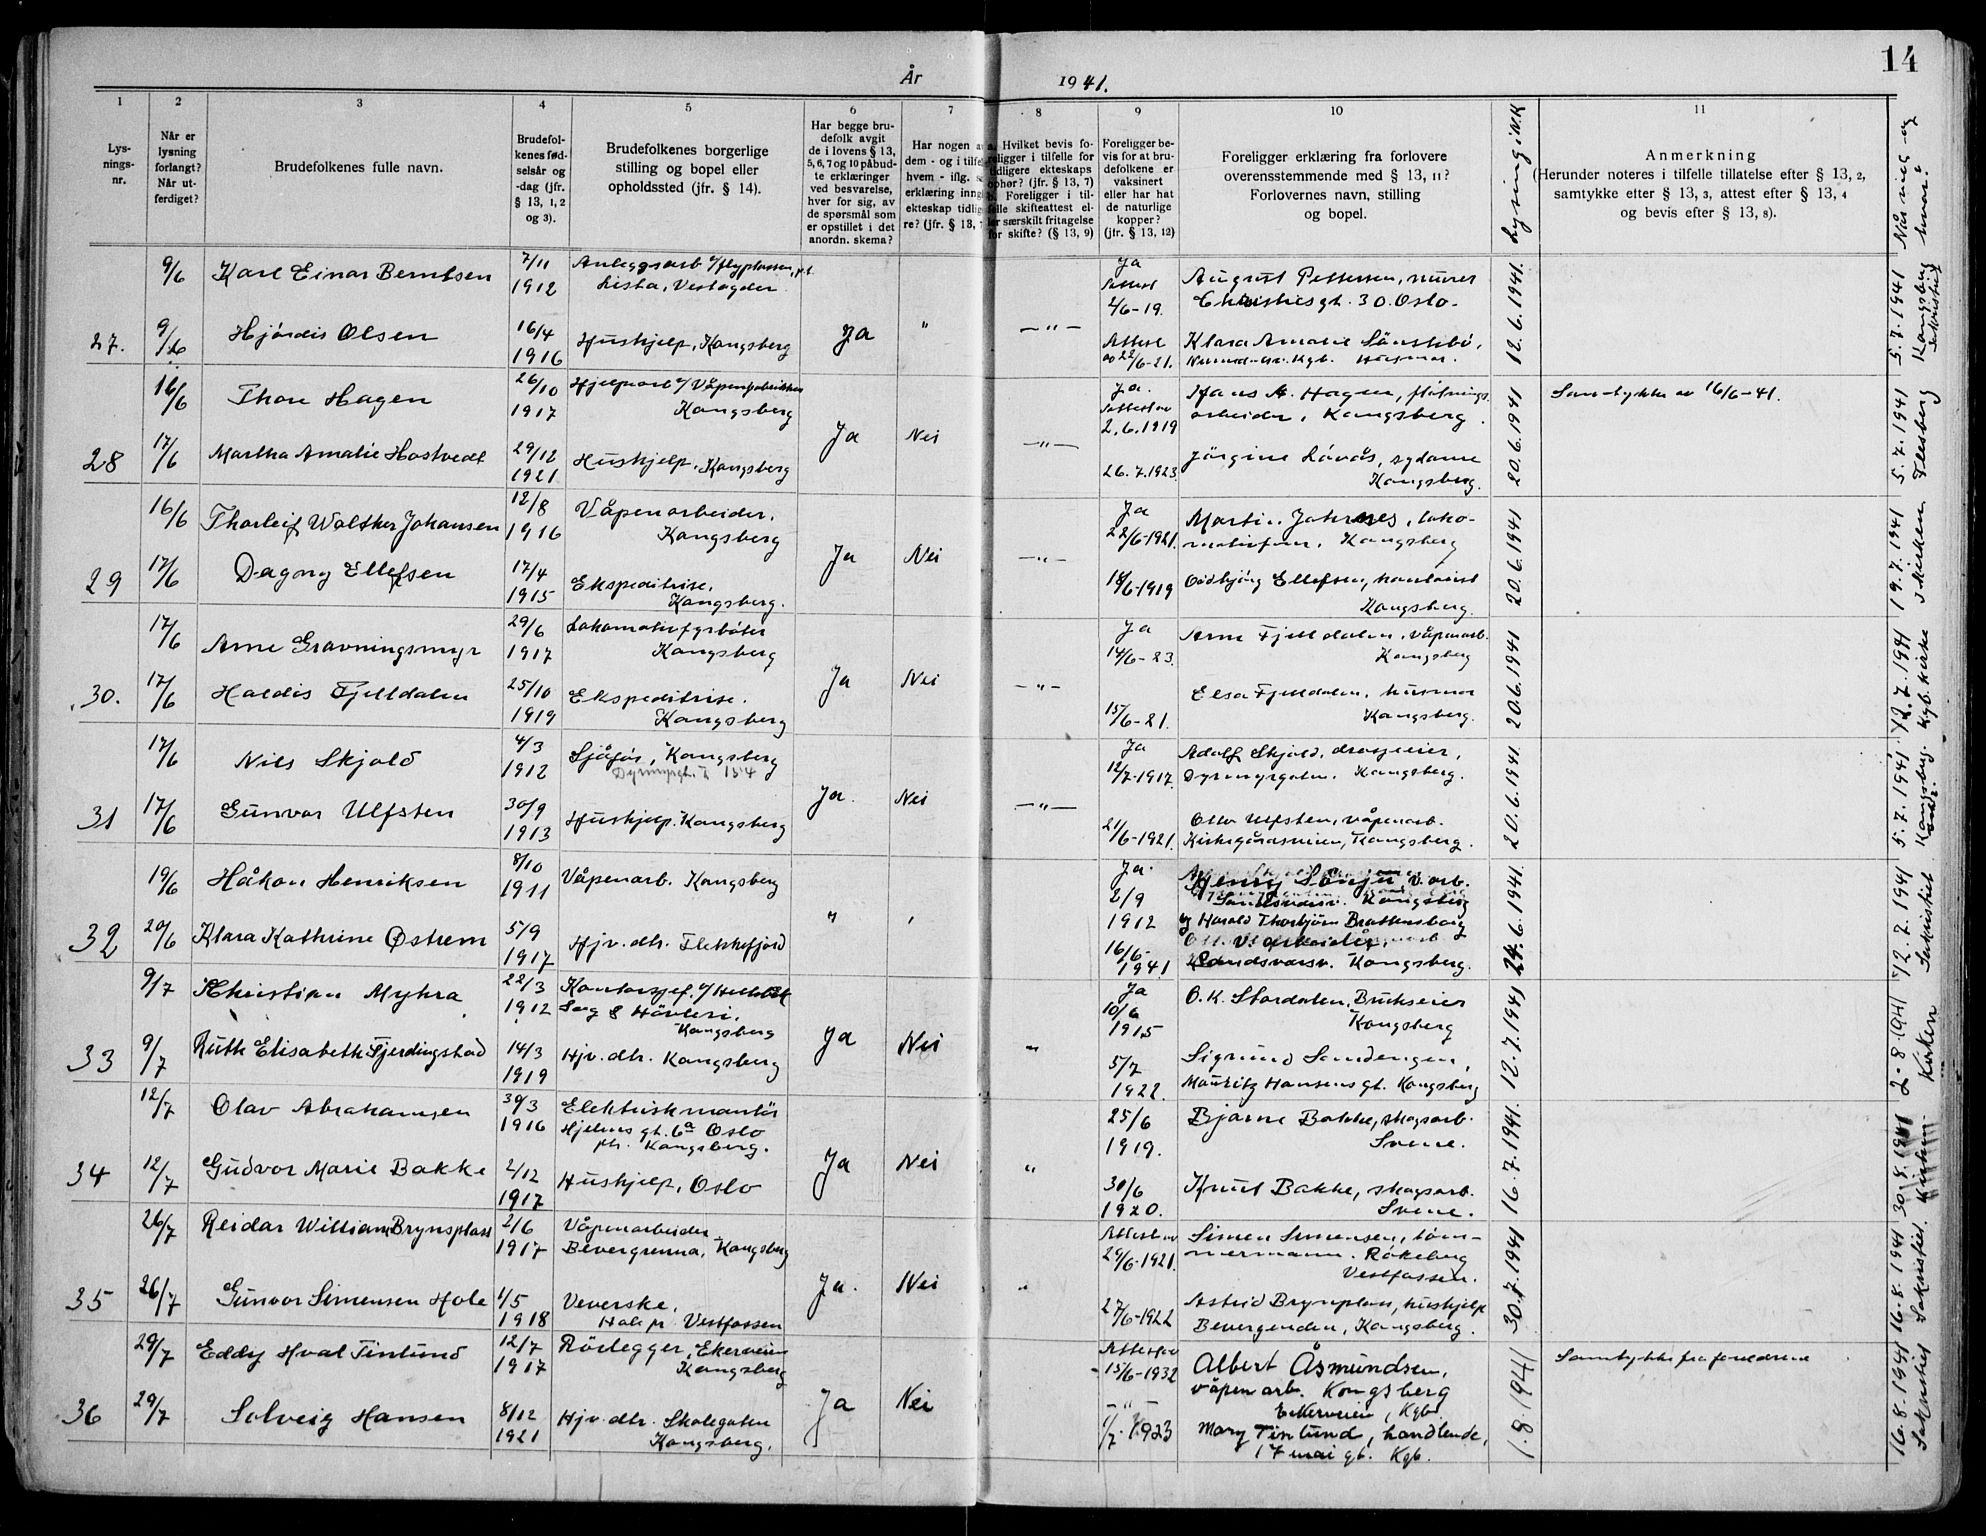 År 1941.
14
1 2 3 4 5 6 7 8 9 10 11
Lysnings-nr.
Når er lysning forlangt? Når utferdiget?
Brudefolkenes fulle navn.
Brudefolkenes fødselsår og -dag (jfr. § 13, 1, 2 og 3).
Brudefolkenes borgerlige stilling og bopel eller opholdssted (jfr. § 14).
Har begge brudefolk avgit de i lovens § 13, 5, 6, 7 og 10 påbudte erklæringer ved besvarelse, hver for sig, av de spørsmål som er opstillet i det anordn. skema?
Har nogen a
dem - og i tilfel
hvem - iflg. s
erklæring inng
ekteskap tidlig
re? (jfr. § 13,
Hvilket bevis foreligger i tilfelle for tidligere ekteskaps ophør? (jfr. § 13, 7) Foreligger i tilfelle skifteattest eller særskilt fritagelse for skifte? (§ 13, 9)
Foreligger bevis for at brudefolkene er vaksinert eller har hat de naturlige kopper? (jfr. § 13, 12)
Foreligger erklæring fra forlovere overensstemmende med § 13, 11? Forlovernes navn, stilling og bopel.
Lysning i N.K
Anmerkning
(Herunder noteres i tilfelle tillatelse efter § 13, 2, samtykke efter § 13, 3, attest efter § 13, 4 og bevis efter § 13, 8).
Når viet og hvor?
9/6 Karl Einar Berntsen 7/11 1912 Anleggsarb. v/flyplassen, p.t. Lista, Vestagder Ja Attest 2/6-19. August Pettersen, murer Christiesgt. 30 Oslo.
27. 9/6 Hjördis Olsen 16/4 1916 Hushjelp, Kongsberg Ja " — " — Attest av 22/6-21. Klara Amalie Kgb. Husmor. 12.6.1941. 5.7.1941 Kongsberg Sakristiet
16/6 Thor Hagen 26/10 1917 Hjelpearb v/Våpenfabrikken Kongsberg Ja. Attest av 2.6.1919 Hans A. Hagen, fløtningsarbeider, Kongsberg Samtykke av 16/6-41.
28 17/6 Martha Amalie Hostvedt 29/12 1921 Hushjelp, Kongsberg Ja Nei — " — 26.7.1923 Jörgine Lövås, sydame Kongsberg. 20.6.1941 5.7.1941 Flesberg
16/6 Thorleif Walther Johansen 12/8 1916 Våpenarbeider, Kongsberg Ja 22/6-1921. Martin Johannes, lokomotivfører, Kongsberg
29 17/6 Dagny Ellefsen 17/4 1915 Ekspeditrise, Kongsberg. Ja Nei — " — 18/6-1919 Oddbjörg Ellefsen, Kongsberg. 20.6.1941 19.7.1941 i Kirken
17/6 Arne Gravningsmyr 29/6 1917 Lokomotivfyrböter Kongsberg Ja 14/6-23. Arne Fjelldalen, våpenarb. Kongsberg
30. 17/6 Haldis Fjelldalen 25/10 1919 Ekspeditrise. Kongsberg Ja Nei — " — 15/6-21. Elsa Fjelldalen, husmor Kongsberg. 20.6.1941 12.7.1941 Kgb. kirke
17/6 Nils Skjold 4/3 1912 Sjåför, Kongsberg Dyrmyrgt. 154 Ja 12/7-1917. Adolf Skjold, drosjeeier, Dyrmyrgaten. Kongsberg.
31 17/6 Gunvor Ulfsten 30/9 1913 Hushjelp. Kongsberg Ja. Nei — " — 21/6-1921. Olav Ulfsten, våpenarb. Kirkegårdsveien, Kongsberg. 20.6.1941. 5.7.1941. Kongsberg
19/6 Håkon Henriksen 8/10 1911 Våpenarb. Kongsberg Ja. 2/9 1912 Henry Sönju, v.arb. Kongsberg
32 20/6 Klara Kathrine Østrem 5/9 1917 Hjv. dtr. Flekkefjord " 16/6-1941 og Harald Thorbjörn Brattensborg V. arbeider, Sandsværsv. Kongsberg. 24.6.1941. 12.7.1941 Sakristiet
9/7 Christian Myhra 22/3 1912 Kontorsjef. v/Hellebæk Sag & Hövleri, Kongsberg Ja 10/6 1915 O.K. Stordalen, Brukseier Kongsberg
33 9/7 Ruth Elisabeth Fjerdingstad 14/3 1919 Hjv. dtr. Kongsberg Ja Nei " 5/7 1922. Sigmund Sandengen, Mauritz Hansens gt. Kongsberg 12.7.1941 2.8.1941 Kirken
12/7 Olav Abrahamsen 30/3 1916 Elektriskmontör Hjelms gt. 6a Oslo Kongsberg. 25/6 1919. Bjarne Bakke, skogsarb. Svene.
34 12/7 Gudvor Marie Bakke 2/12 1917 Hushjelp, Oslo Ja Nei " 30/6 1920. Knut Bakke, skogsarb. Svene. 16.7.1941. 30.8.1941 Kirken
26/7 Reidar William Brynsplass 2/6 1917 Våpenarbeider Bevergrenna, Kongsberg Attest av 29/6-1921. Simen Simensen, tömmermann. Rökeberg Vestfossen.
35 26/7 Gunvor Simensen Hole 1/5 1918 Veverske, Hole pr. Vestfossen Ja. Nei " 27/6-1922 Astrid Brynsplass, hushjelp Bevergrenden, Kongsberg. 30.7.1941 16.8.1941 Sakristiet.
29/7 Eddy Hval Tinlund 12/7 1917 Rörlegger, Ekerveien Kongsberg Attest av 15/6-1932 Albert Åsmundsen, våpenarb. Kongsberg Ekerveien, Kgb. Samtykke fra foreldrene
36 29/7 Solveig Hansen 8/12 1921 Hjv. dtr. Skolegaten Kongsberg. Ja Nei — " — 1/7. 1923 Mary Tinlund, handlende, 17 mai gt. Kgb. 1.8.1941 16.8.1941 Sakristiet